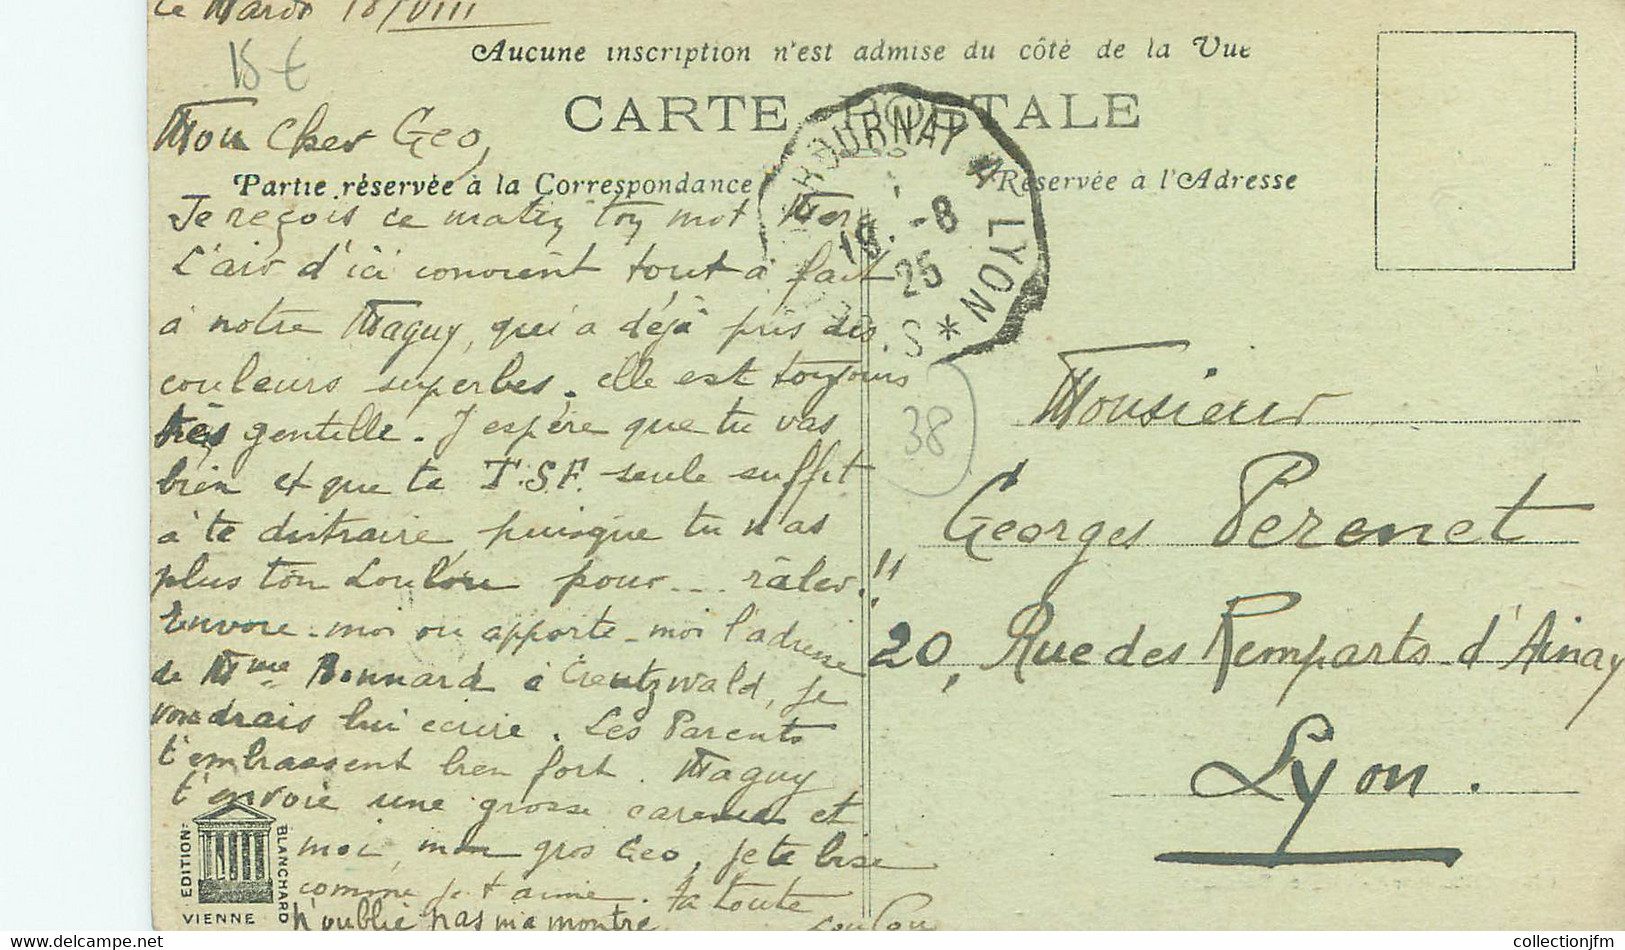 le Mardi 18/VIII
15 €
Aucune inscription n'est admise du côté de la Vue
CARTE POSTALE
Mon cher Geo,
Partie réservée à la Correspondance
Réservée à l'Adresse
BOURNAY A LYON
18 -8
25
S.
Je reçois ce matin ton mot
L'air d'ici convient tout à fait
à notre Maguy, qui a déjà pris des
couleurs superbes. elle est toujours
très gentille. J'espère que tu vas
bien et que ta T.S.F. seule suffit
à te distraire, puisque tu n'as
plus ton Loulou pour... râler!!
Envoie-moi ou apporte-moi l'adresse
de Mme Bonnard à Creutzwald, je
voudrais lui écrire. Les Parents
t'embrassent bien fort. Maguy
t'envoie une grosse caresse et
moi, mon gros Geo, je te bise
comme je t'aime. ta toute
Loulou
n'oublie pas ma montre
38
Monsieur
Georges Perenet
20, Rue des Remparts d'Ainay
Lyon.
EDITION
BLANCHARD
VIENNE
collectionjfm